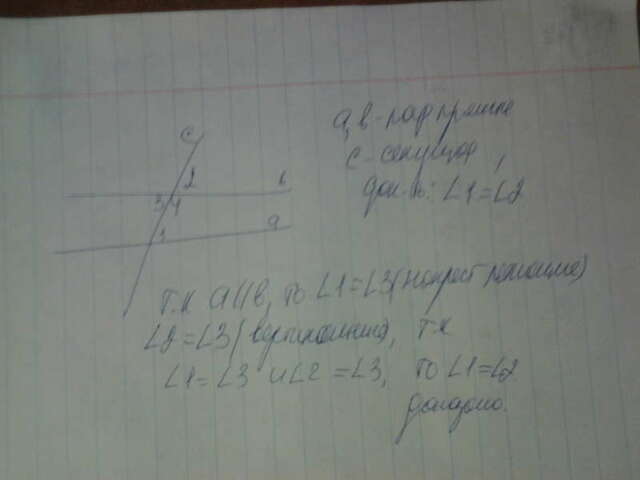 a, b - пар прямые
c - секущая,
Док-ть: ∠1 = ∠2
c
2
b
3 4
a
1
Т.к a || b, то ∠1 = ∠3 (накрест лежащие)
∠2 = ∠3 (вертикальные), т.к
∠1 = ∠3 и ∠2 = ∠3, то ∠1 = ∠2
Доказано.